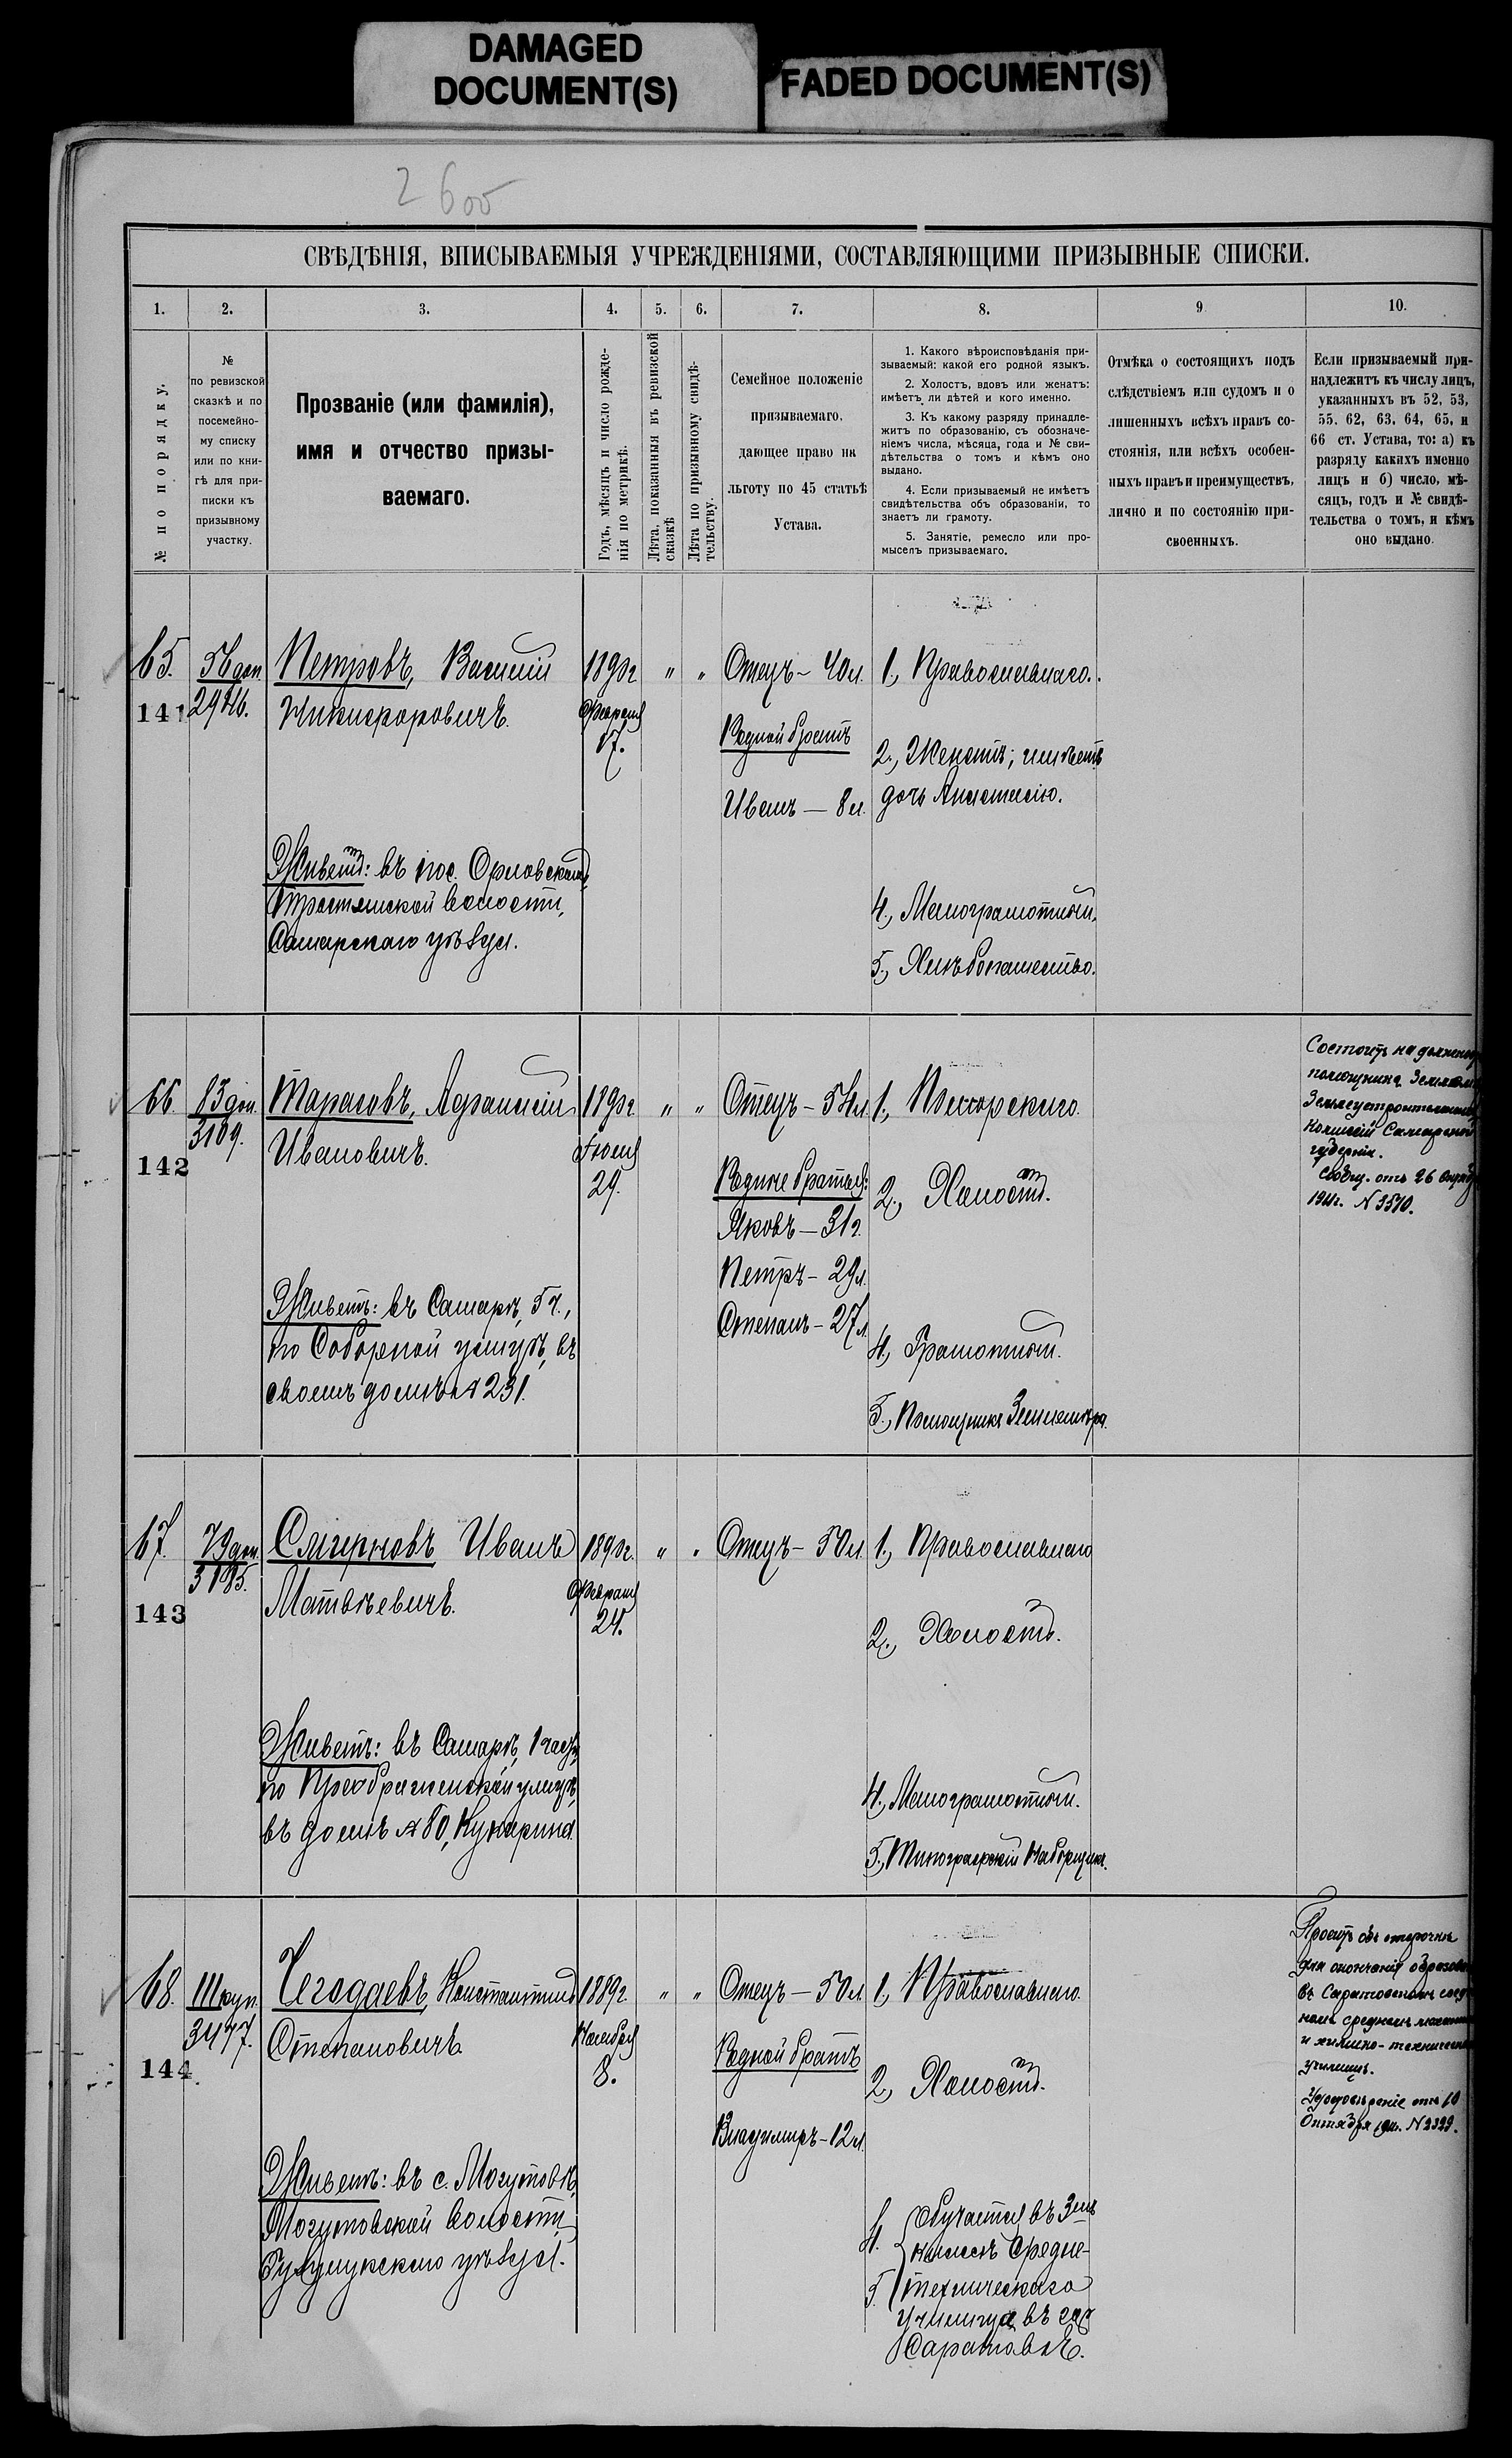 DAMAGED
DOCUMENT(S)
FADED DOCUMENT(S)
2600
СВѢДѢНІЯ, ВПИСЫВАЕМЫЯ УЧРЕЖДЕНІЯМИ, СОСТАВЛЯЮЩИМИ ПРИЗЫВНЫЕ СПИСКИ.
1. 2. 3. 4. 5. 6. 7. 8. 9. 10.
№ по порядку.
№
по ревизской
сказкѣ и по
посемейно-
му списку
или по кни-
гѣ для при-
писки къ
призывному
участку.
Прозваніе (или фамилія),
имя и отчество призы-
ваемаго.
Годъ, мѣсяцъ и число рожде-
нія по метрикѣ.
Лѣта, показанныя въ ревизской
сказкѣ
Лѣта по призывному свидѣ-
тельству.
Семейное положеніе
призываемаго,
дающее право на
льготу по 45 статьѣ
Устава.
1. Какого вѣроисповѣданія при-
зываемый: какой его родной языкъ.
2. Холостъ, вдовъ или женатъ:
имѣетъ ли дѣтей и кого именно.
3. Къ какому разряду принадле-
житъ по образованію, съ обозначе-
ніемъ числа, мѣсяца, года и № сви-
дѣтельства о томъ и кѣмъ оно
выдано.
4. Если призываемый не имѣетъ
свидѣтельства объ образованіи, то
знаетъ ли грамоту.
5. Занятіе, ремесло или про-
мыселъ призываемаго.
Отмѣка о состоящихъ подъ
слѣдствіемъ или судомъ и о
лишенныхъ всѣхъ правъ со-
стоянія, или всѣхъ особен-
ныхъ правъ и преимуществъ,
лично и по состоянію при-
своенныхъ.
Если призываемый при-
надлежитъ къ числу лицъ,
указанныхъ въ 52, 53,
55, 62, 63, 64, 65, и
66 ст. Устава, то: а) къ
разряду какихъ именно
лицъ и б) число, мѣ-
сяцъ, годъ и № свидѣ-
тельства о томъ, и кѣмъ
оно выдано.
65.
141
56 доп.
Петровъ, Василій
Никифоровичъ.
Живетъ: въ пос. Орловскомъ,
Тростянской волости,
Самарскаго уѣзда.
1890 г.
Февраля
17.
" "
Отецъ – 40 л.
Родной братъ
Иванъ — 8 л.
1., Православнаго.
2., Женатъ; имѣетъ
дочь Анастасію.
4., Малограмотный.
5., Хлѣбопашество.
66.
142
83 доп.
3109.
Тарасовъ,
Ивановичъ.
Живетъ: въ Самарѣ, 5 ч.,
по Соборной улицѣ, въ
своемъ домѣ № 231.
1890 г.
Іюля
29.
" "
Отецъ – 54 л.
Родные братья:
Яковъ — 31 г.
Петръ – 29 л.
Степанъ – 27 л.
1.,
2., Холостъ.
4., Грамотный.
5., Помощникъ Землемѣра.
Состоитъ на должност
помощника Землем
Землеустроительной
Комиссіи Самарской
губерніи.
Сообщ. отъ 26
1911 г. № 3570.
67.
143
79 доп.
3185.
Смирновъ Иванъ
Матвѣевичъ.
Живетъ: въ Самарѣ, 1 части,
по Преображенской улицѣ,
въ домѣ № 80,
1890 г.
Февраля
24.
" "
Отецъ – 50 л.
1., Православнаго
2., Холостъ.
4., Малограмотный.
5., Типографскій Наборщикъ.
68.
144
3477.
Чегодаевъ, Константинъ
Степановичъ
Живетъ: въ с. Могутовѣ,
Могутовской волости,
Бузулукскаго уѣзда.
1889 г.
Ноября
8.
" "
Отецъ – 50 л.
Родной братъ
Владимиръ – 12 л.
1., Православнаго.
2., Холостъ.
4.
5.
Обучается въ 3емъ
классѣ Средне-
техническаго
училища въ гор
Саратовѣ.
Проситъ объ отсрочкѣ
для окончанія образова
въ Саратовскомъ соед
номъ среднемъ механи
и химико-техническо
училищѣ.
Удостовѣреніе отъ 10
Октября 1911 г. № 2329.